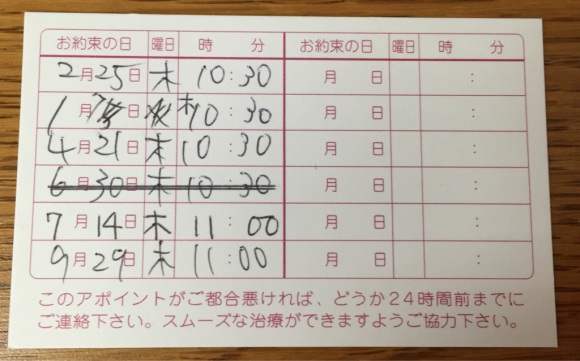 お約束の日 曜日 時 分 お約束の日 曜日 時 分
2月25日 木 10:30 月 日 :
1月 日 木 10:30 月 日 :
4月21日 木 10:30 月 日 :
6月30日 木 10:30 月 日 :
7月14日 木 11:00 月 日 :
9月29日 木 11:00 月 日 :
このアポイントがご都合悪ければ、どうか24時間前までに
ご連絡下さい。スムーズな治療ができますようご協力下さい。